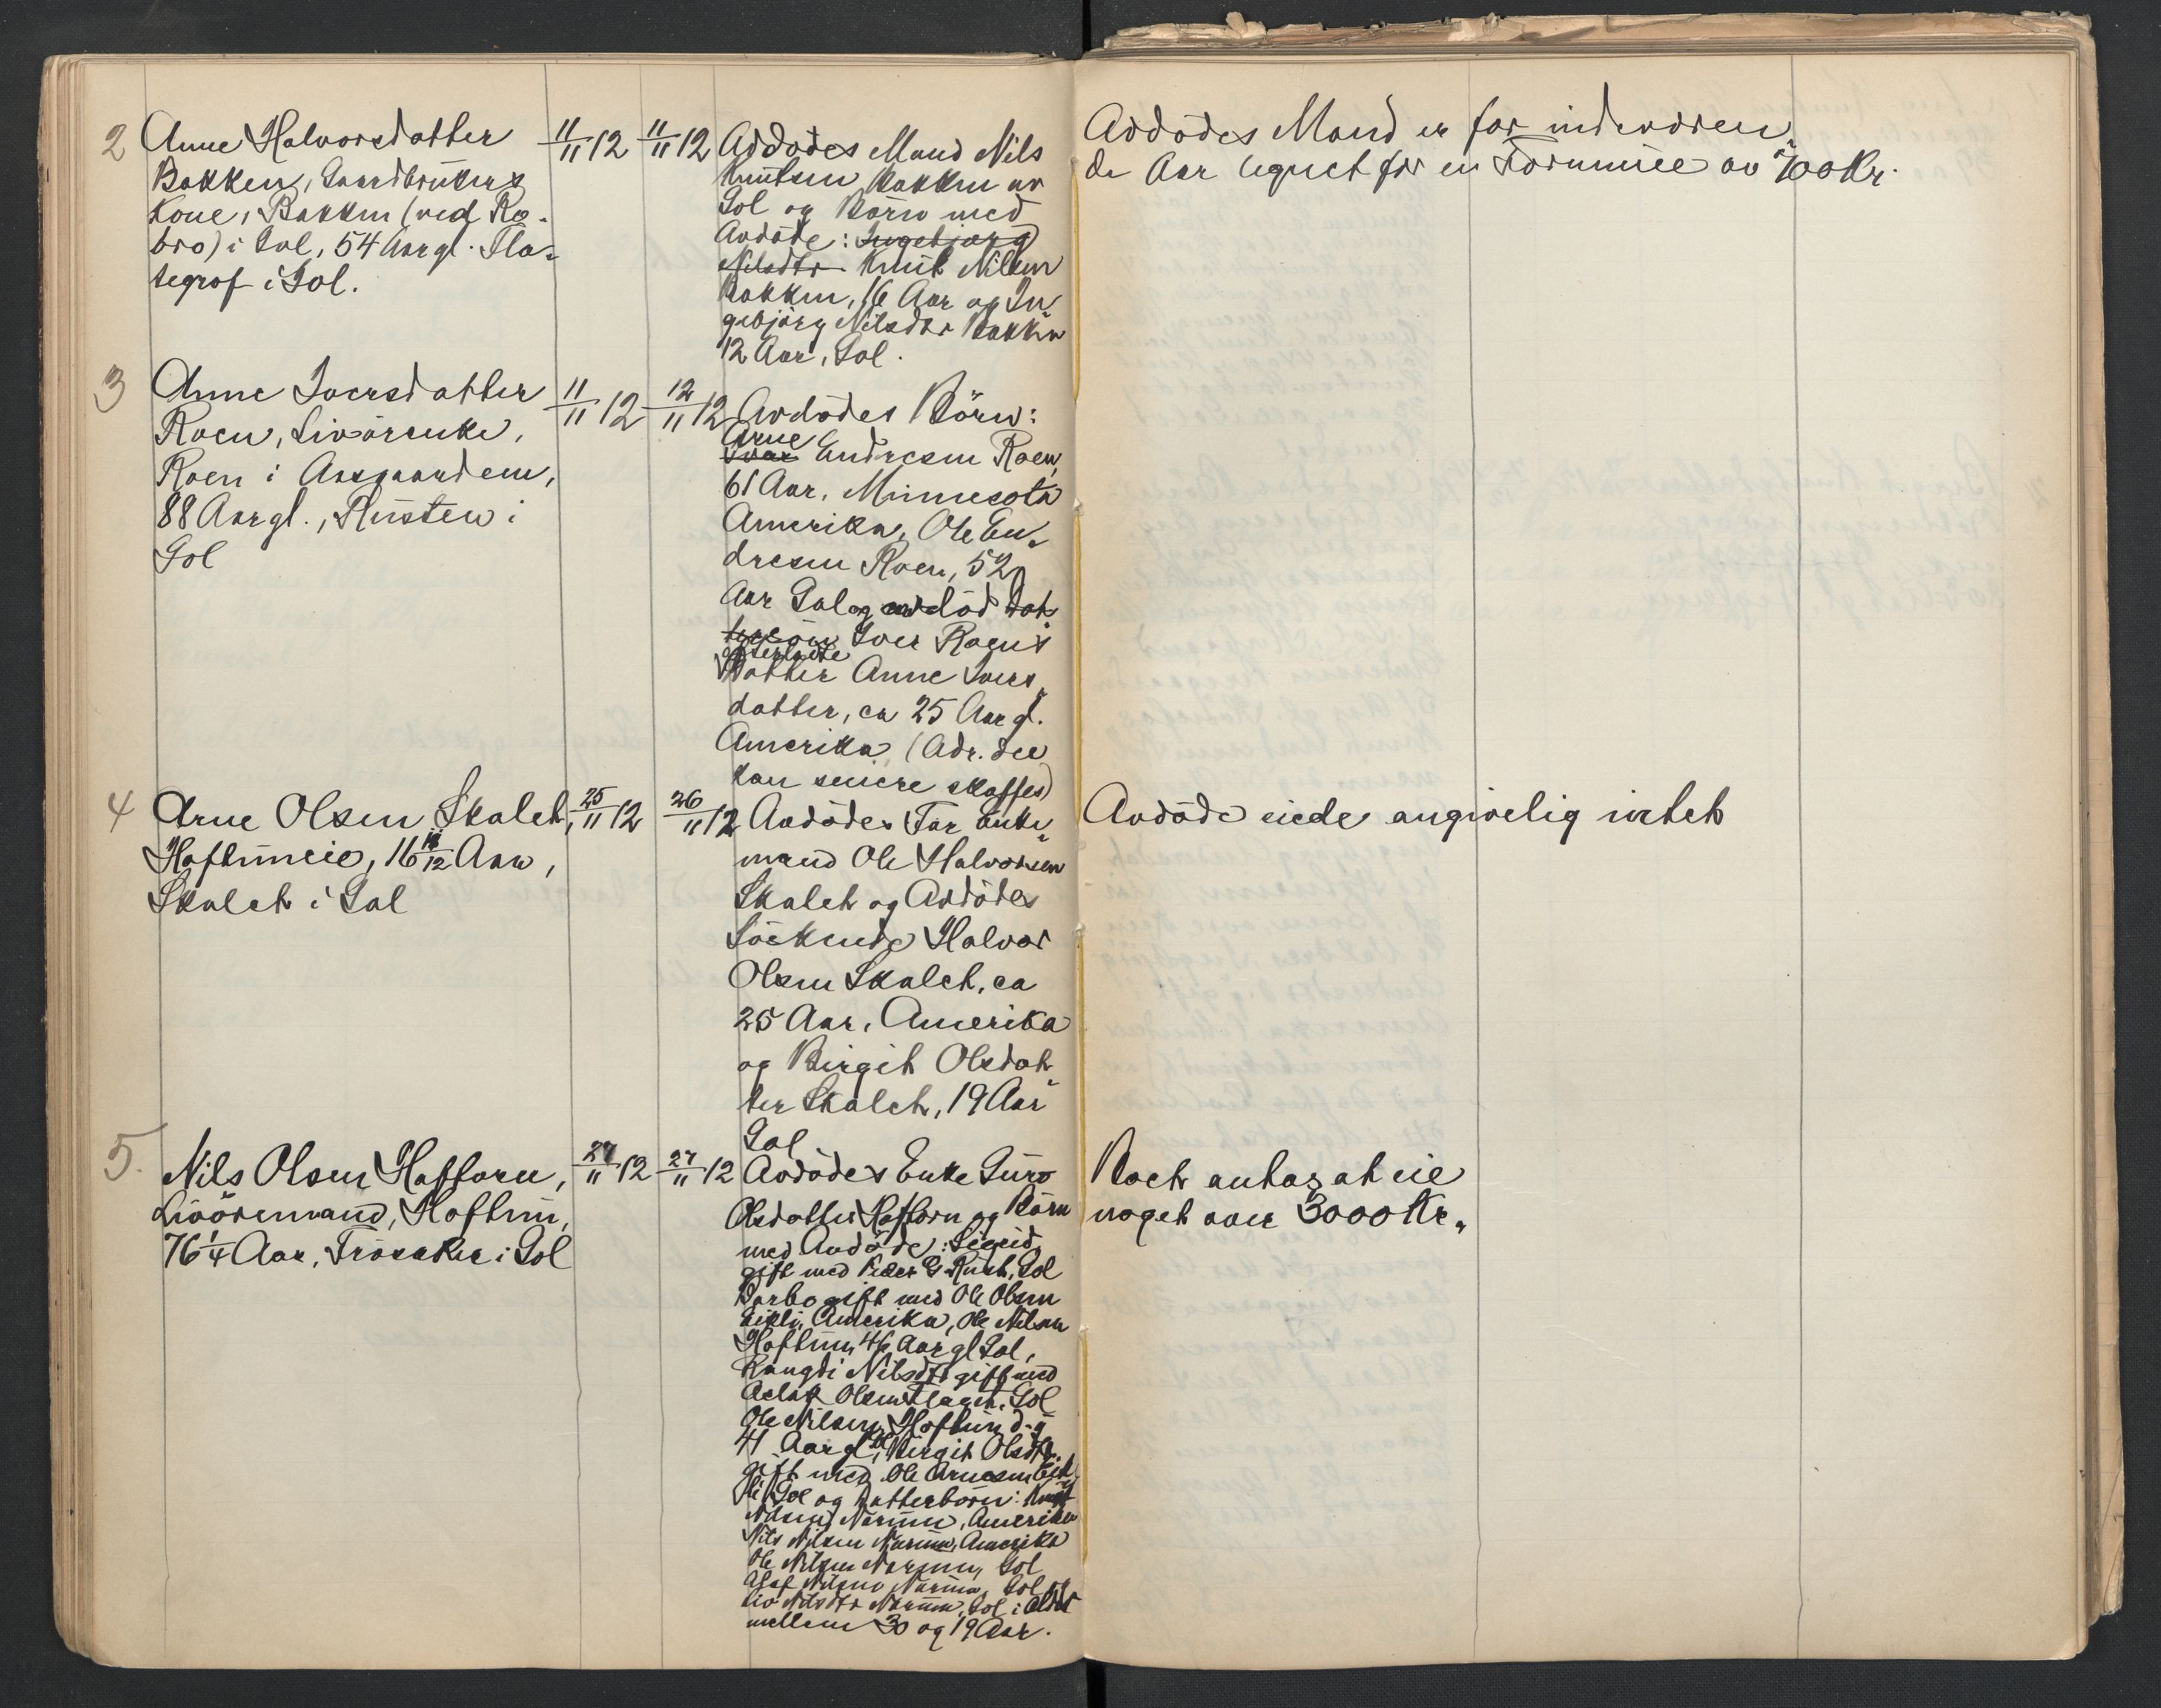 2 Anne Halvorsdatter
Bakken, Gaardbrukers
Kone, Bakken (ved Ro-
bro) i Gol, 54 Aar gl. Fla-
tegrof i Gol.
11/11 12 11/11 12
Avdødes Mand Nils
Knutsen Bakken av
Gol og Børn med
Avdøde: Ingebjørg
Nilsdtr Knut Nilsen
Bakken, 16 Aar og In-
gebjørg Nilsdtr Bakken
12 Aar, Gol.
Avdødes Mand er for indeværen-
de Aar lignet for en Formue av 700 Kr.
3 Anne Iversdatter
Roen, Livørenke,
Roen i Aasgaardene,
88 Aar gl., Rusten i
Gol
11/11 12 12/11 12
Avdødes Børn:
Arne
Ivar Endresen Roen,
61 Aar, Minnesota
Amerika, Ole En-
dresen Roen, 52
Aar Gol og avdød Dat
tersøn Iver Roens
efterladte
Datter Anne Ivers-
datter, ca 25 Aar gl.
Amerika (Adr. der
kan senere skaffes)
4 Arne Olsen Skalet,
Hoftuneie, 16 10/12 Aar,
Skalet i Gol
25/11 12 26/11 12
Avdødes Far Enke-
mand Ole Halvorsen
Skalet og Avdødes
Søskende Halvor
Olsen Skalet, ca
25 Aar, Amerika
og Birgit Olsdat-
ter Skalet, 19 Aar
Gol
Avdøde eiede angivelig intet
5. Nils Olsen Haftorn,
Livøremand, Hoftun,
76 1/4 Aar, Trøsaker i Gol
27/11 12 27/11 12
Avdødes Enke Guro
Olsdatter Haftorn og Børn
med Avdøde: Sigrid,
gift med Peder G. Rust, Gol
Barbo gift med Ole Olsen
Eikli, Amerika, Ole Nilsen
Hoftun, 46 Aar gl Gol,
Rangdi Nilsdtr gift med
Aslak Olsen Flaget, Gol
Ole Nilsen Hoftun d. y
41 Aar gl, Birgit Olsdtr.
gift med Ole Arnesen Eik
li Gol og Datterbørn: Knut
Nilsen Narum, Amerika
Nils Nilsen Narum, Amerika
Ole Nilsen Narum, Gol
Olaf Nilsen Narum, Gol
Liv Nilsdtr Narum, Gol i Alder
mellem 30 og 19 Aar.
Boet antas at eie
noget over 3000 Kr.